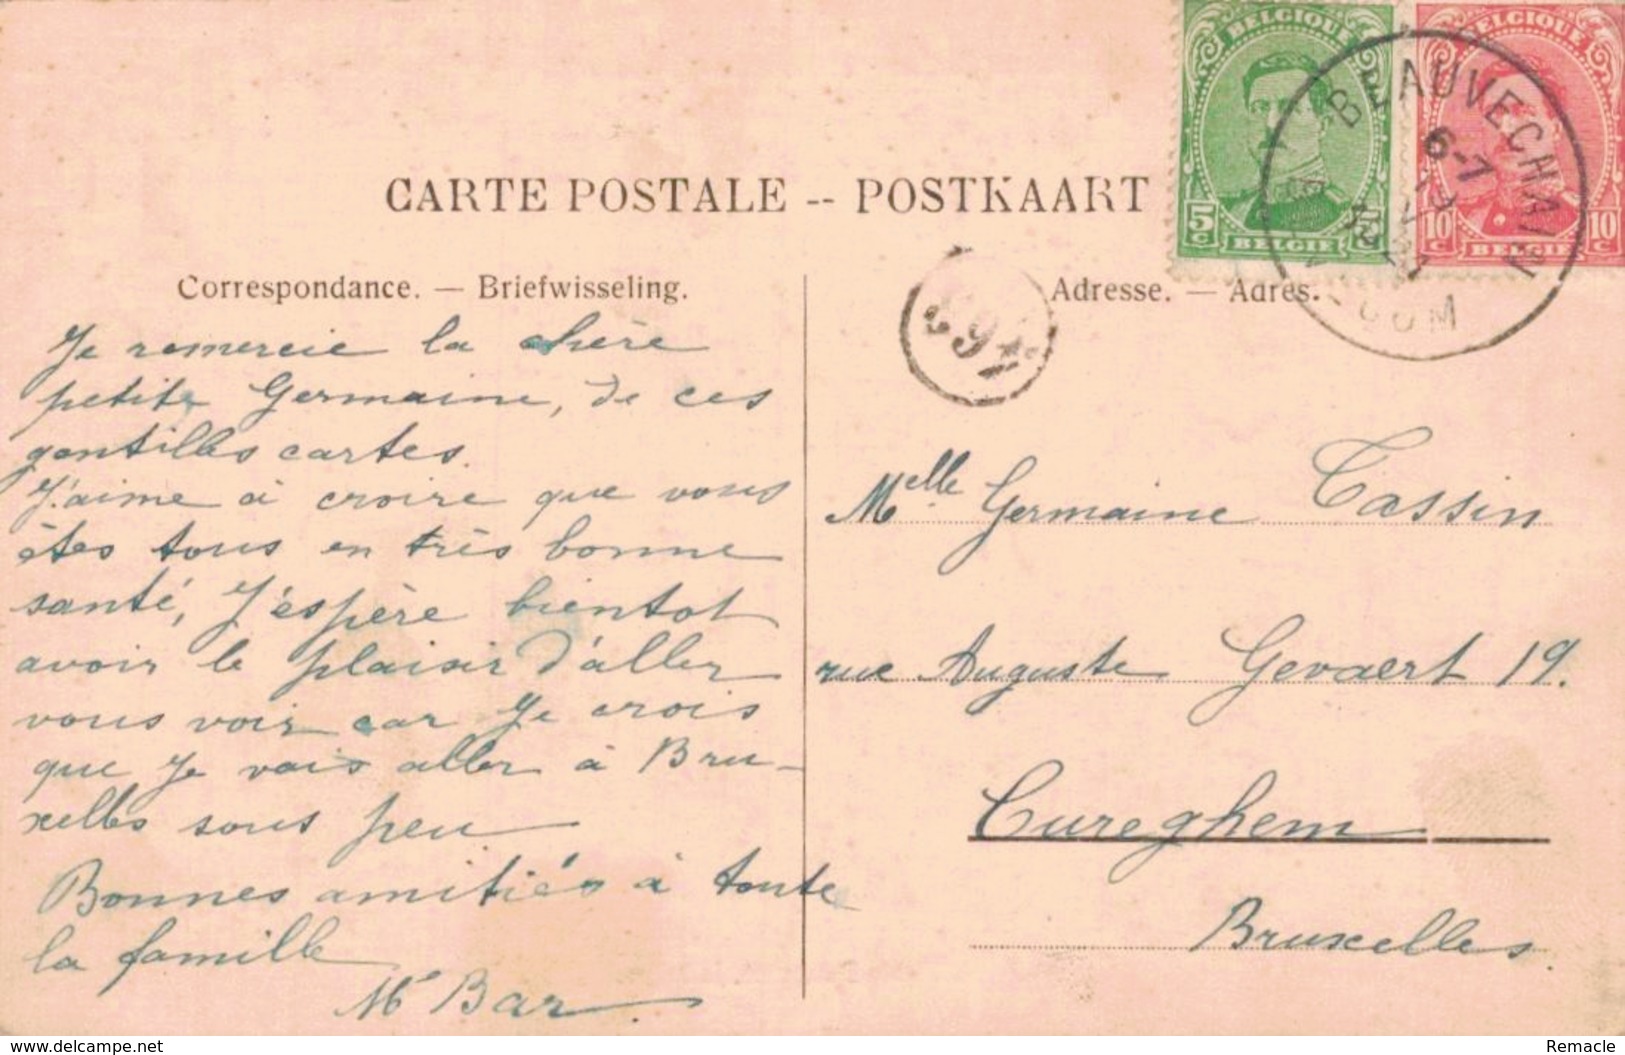 BELGIQUE
BELGIQUE
5c
BELGIE
10c
BELGIE
10c
BEAUVECHAIN
6-7
CARTE POSTALE -- POSTKAART
Correspondance. — Briefwisseling.
Je remercie la chère
petite Germaine, de ces
gentilles cartes.
J'aime à croire que vous
êtes tous en très bonne
santé, J'espère bientot
avoir le plaisir d'aller
vous voir car Je crois
que Je vais aller à Bru-
xelles sous peu
Bonnes amitiés à toute
la famille
Me Bar
Adresse. — Adres.
Melle Germaine Tassin
rue Auguste Gevaert 19.
Cureghem
Bruxelles.
www.delcampe.net
Remacle